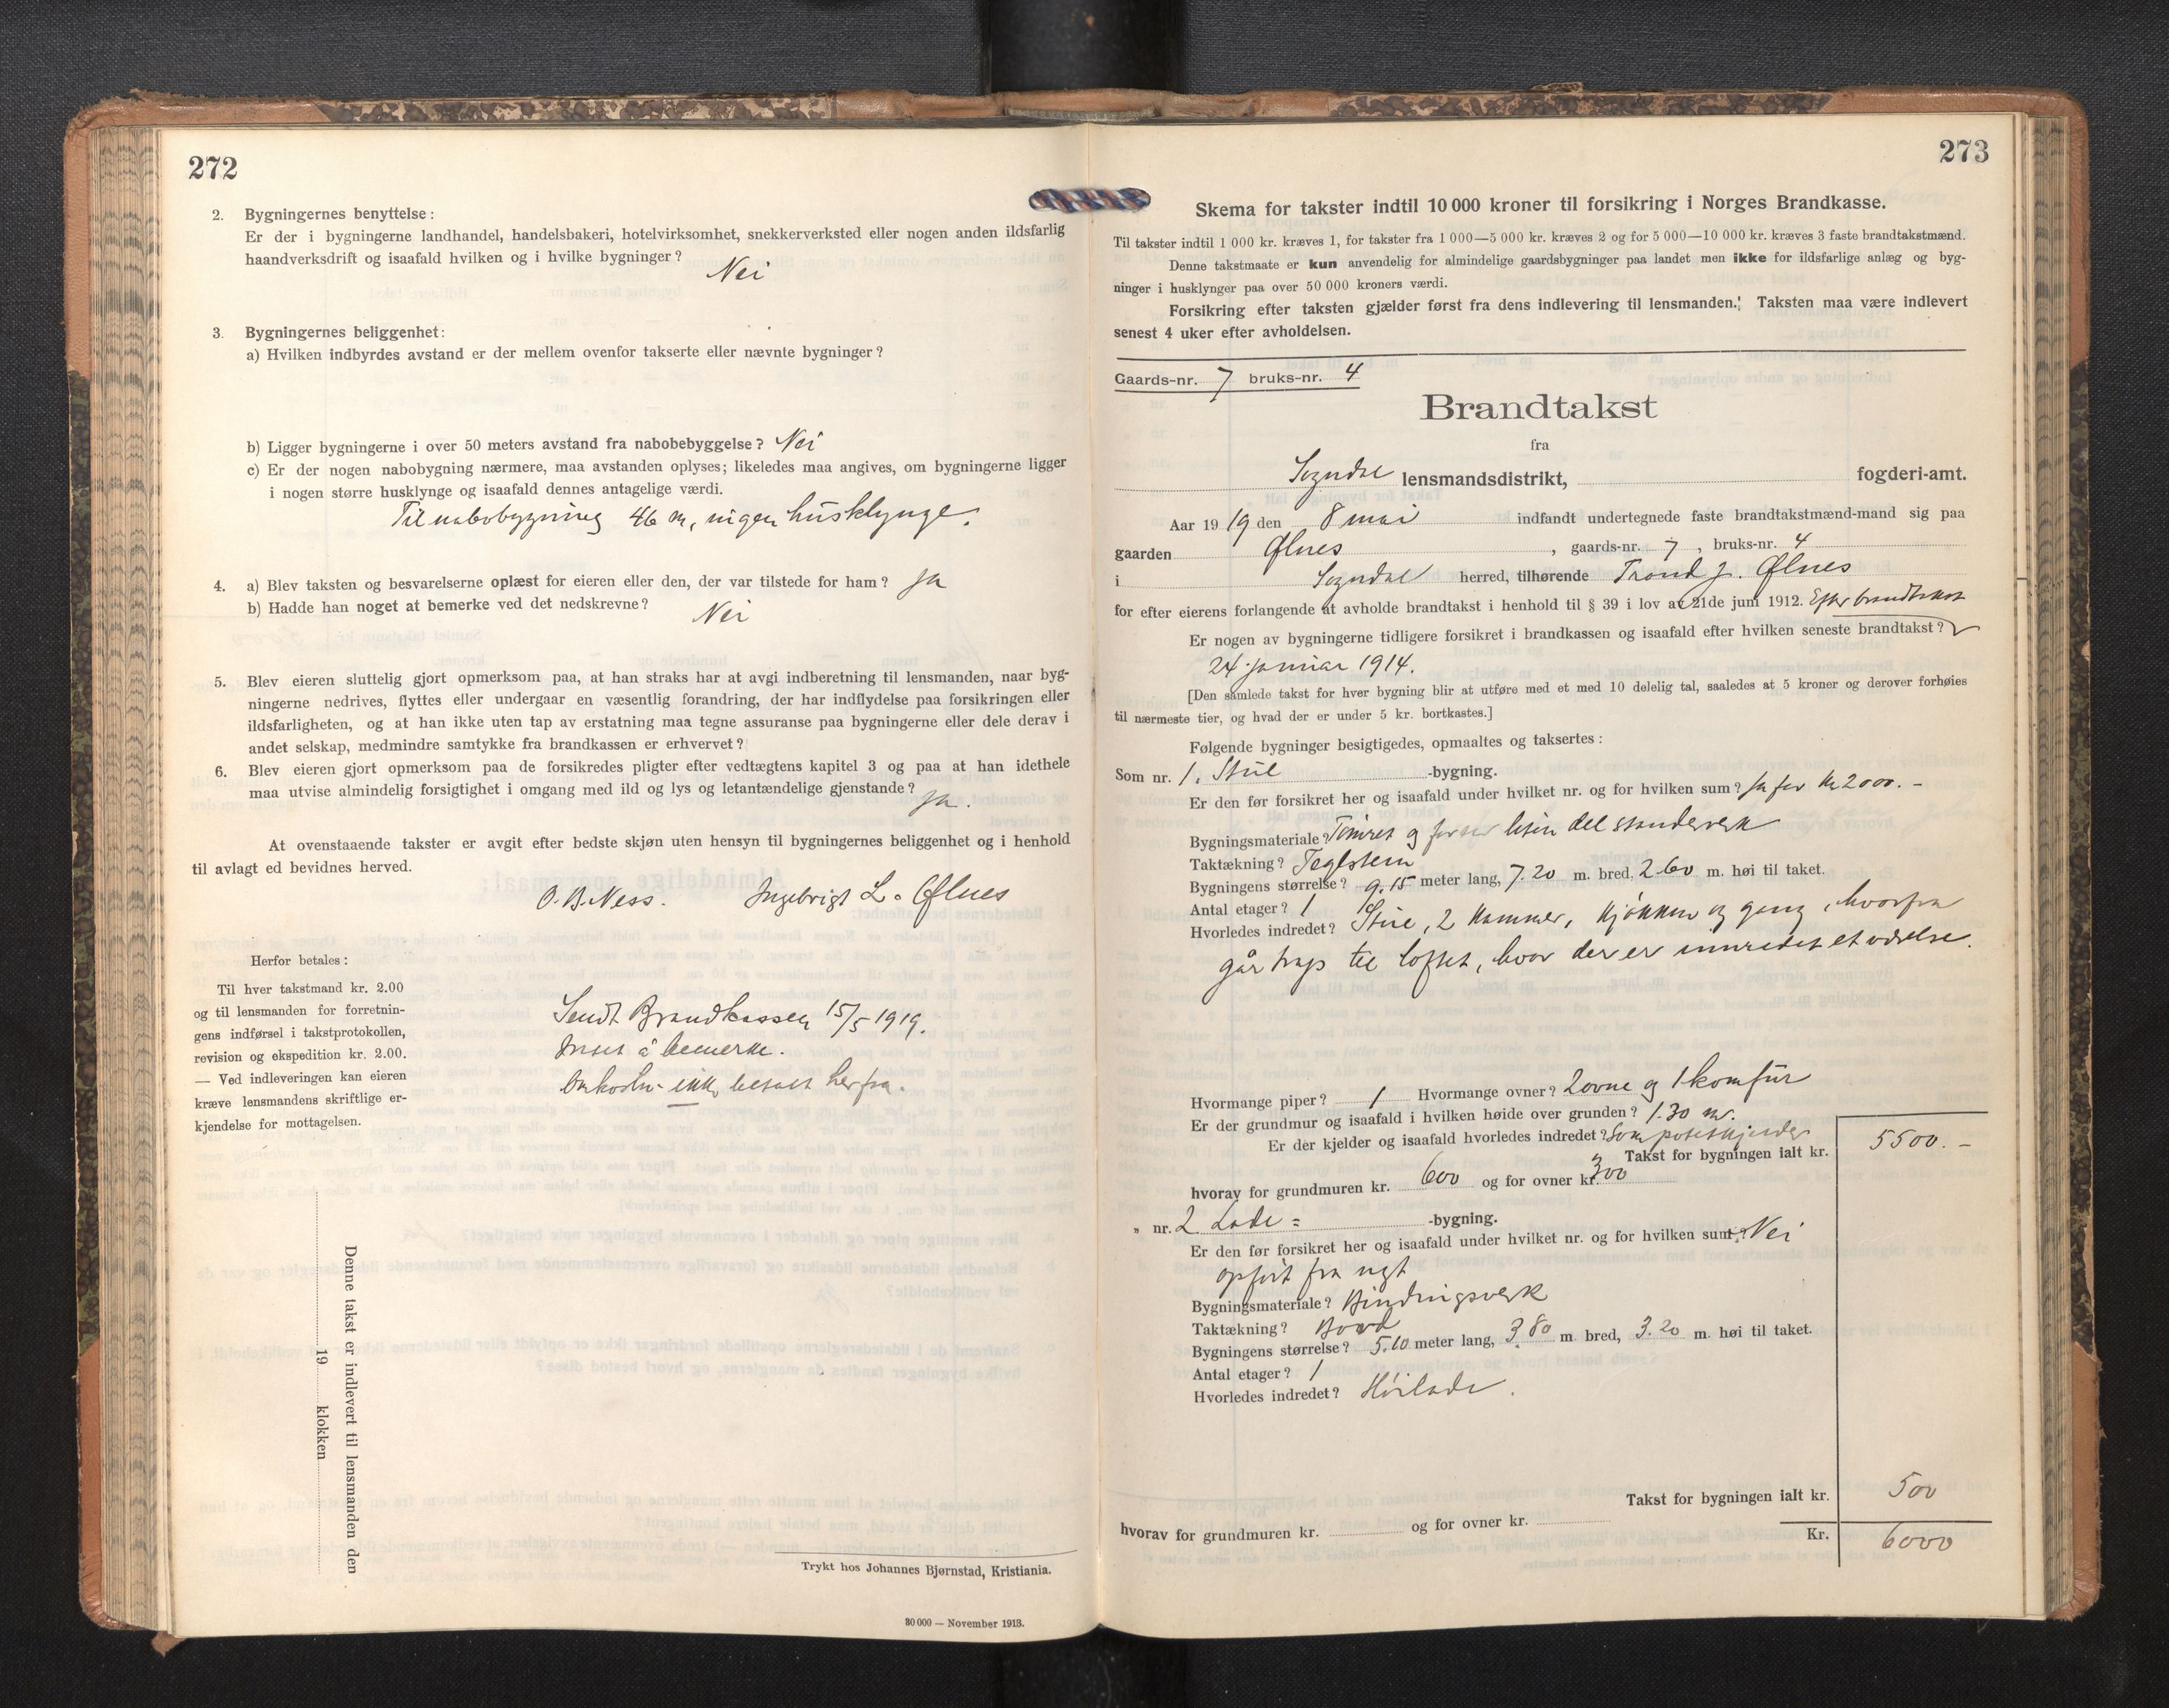 272
2. Bygningernes benyttelse:
Er der i bygningerne landhandel, handelsbakeri, hotelvirksomhet, snekkerverksted eller nogen anden ildsfarlig
haandverksdrift og isaafald hvilken og i hvilke bygninger? Nei
3. Bygningernes beliggenhet:
a) Hvilken indbyrdes avstand er der mellem ovenfor takserte eller nævnte bygninger?
b) Ligger bygningerne i over 50 meters avstand fra nabobebyggelse? Nei
c) Er der nogen nabobygning nærmere, maa avstanden oplyses; likeledes maa angives, om bygningerne ligger
i nogen større husklynge og isaafald dennes antagelige værdi.
Til nabobygning 46 m, nigen husklynge.
4. a) Blev taksten og besvarelserne oplæst for eieren eller den, der var tilstede for ham? Ja
b) Hadde han noget at bemerke ved det nedskrevne? Nei
5. Blev eieren sluttelig gjort opmerksom paa, at han straks har at avgi indberetning til lensmanden, naar byg-
ningerne nedrives, flyttes eller undergaar en væsentlig forandring, der har indflydelse paa forsikringen eller
ildsfarligheten, og at han ikke uten tap av erstatning maa tegne assuranse paa bygningerne eller dele derav i
andet selskap, medmindre samtykke fra brandkassen er erhvervet?
6. Blev eieren gjort opmerksom paa de forsikredes pligter efter vedtægtens kapitel 3 og paa at han idethele
maa utvise almindelig forsigtighet i omgang med ild og lys og letantændelige gjenstande? Ja.
At ovenstaaende takster er avgit efter bedste skjøn uten hensyn til bygningernes beliggenhet og i henhold
til avlagt ed bevidnes herved.
O. B. Ness. Ingebrigt L. Ølnes
Herfor betales:
Til hver takstmand kr. 2.00
og til lensmanden for forretnin-
gens indførsel i takstprotokollen,
revision og ekspedition kr. 2.00.
— Ved indleveringen kan eieren
kræve lensmandens skriftlige er-
kjendelse for mottagelsen.
Sendt Brandkassen 15/5 1919.
Intet å bemerke.
Omkostn. ikke betalt herfra.
Denne takst er indlevert til lensmanden den
19 klokken
Trykt hos Johannes Bjørnstad, Kristiania.
30 000 — November 1913.
273
Skema for takster indtil 10 000 kroner til forsikring i Norges Brandkasse.
Til takster indtil 1 000 kr. kræves 1, for takster fra 1 000—5 000 kr. kræves 2 og for 5 000—10 000 kr. kræves 3 faste brandtakstmænd.
Denne takstmaate er kun anvendelig for almindelige gaardsbygninger paa landet men ikke for ildsfarlige anlæg og byg-
ninger i husklynger paa over 50 000 kroners værdi.
Forsikring efter taksten gjælder først fra dens indlevering til lensmanden. Taksten maa være indlevert
senest 4 uker efter avholdelsen.
Gaards-nr. 7 bruks-nr. 4
Brandtakst
fra
Sogndal lensmandsdistrikt, fogderi-amt.
Aar 1919 den 8 mai indfandt undertegnede faste brandtakstmænd-mand sig paa
gaarden Ølnes, gaards-nr. 7, bruks-nr. 4
i Sogndal herred, tilhørende Trond J. Ølnes
for efter eierens forlangende at avholde brandtakst i henhold til § 39 i lov av 21de juni 1912. Efter brandtakst
Er nogen av bygningerne tidligere forsikret i brandkassen og isaafald efter hvilken seneste brandtakst?
24 januar 1914.
[Den samlede takst for hver bygning blir at utføre med et med 10 delelig tal, saaledes at 5 kroner og derover forhøies
til nærmeste tier, og hvad der er under 5 kr. bortkastes.]
Følgende bygninger besigtigedes, opmaaltes og taksertes:
Som nr. 1. Stue -bygning.
Er den før forsikret her og isaafald under hvilket nr. og for hvilken sum? Ja for kr 2000.-
Bygningsmateriale? Tømret og liten del standerverk
Taktækning? Teglsten
Bygningens størrelse? 9.15 meter lang, 7.20 m. bred, 2.60 m. høi til taket.
Antal etager? 1
Hvorledes indredet? Stue, 2 kammer, kjøkken og gang, hvorfra
går trap til loftet, hvor der er innredet et værelse.
Hvormange piper? 1 Hvormange ovner? 2 ovne og 1 komfur
Er der grundmur og isaafald i hvilken høide over grunden? 1.30 m.
Er der kjelder og isaafald hvorledes indredet? Som potetkjelder
Takst for bygningen ialt kr. 5500.-
hvorav for grundmuren kr. 600 og for ovner kr. 300
„ nr. 2 Lade = -bygning.
Er den før forsikret her og isaafald under hvilket nr. og for hvilken sum? Nei
opført fra nyt
Bygningsmateriale? Bindingsverk
Taktækning? Bord
Bygningens størrelse? 5.10 meter lang, 3.80 m. bred, 3.20 m. høi til taket.
Antal etager? 1
Hvorledes indredet? Høilade.
Takst for bygningen ialt kr. 500
hvorav for grundmuren kr. og for ovner kr.
Kr. 6000